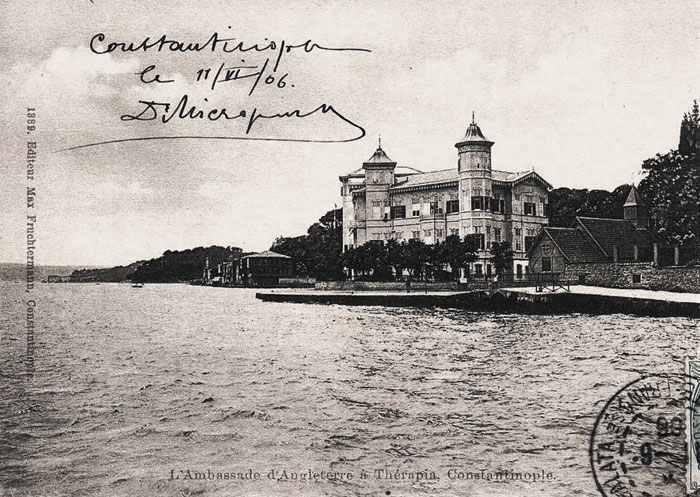 Constantinople
le 11/VI/06.
1889. Editeur Max Fruchtermann, Constantinople
L'Ambassade d'Angleterre à Thérapia, Constantinople.
GALATA